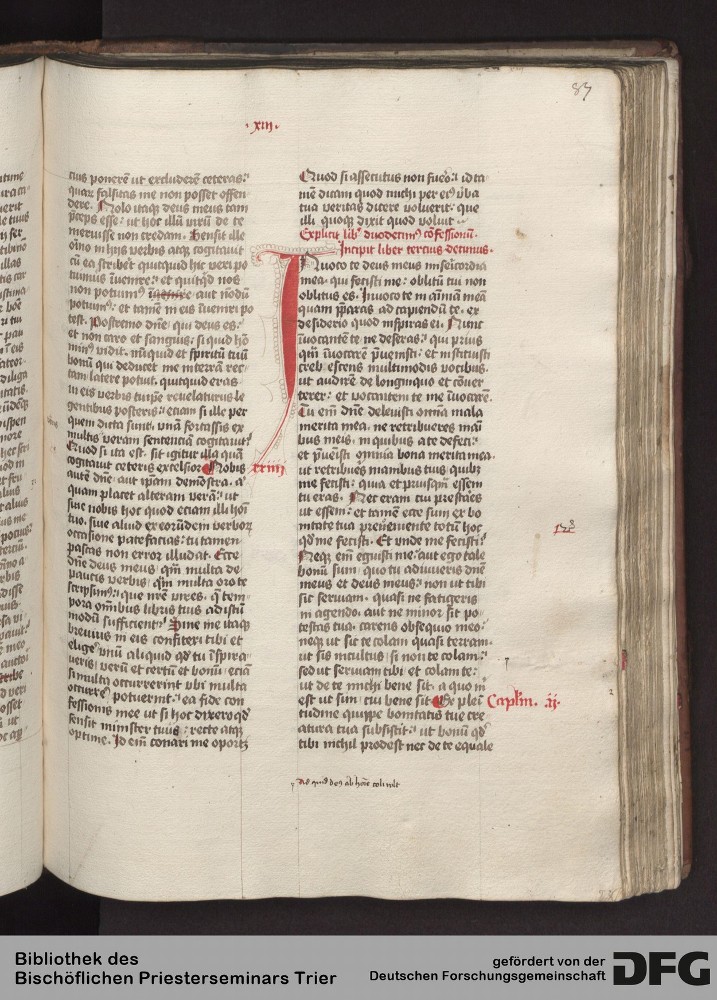 87
· xiii ·
tius ponerē ut excluderē ceteras:
quas falsitas me non posset offen
dere. Nolo itaq deus meus tam
p̄ceps esse: ut hoc illū virū de te
meruisse non credam. Sensit ille
oīno in hijs verbis atq cogitauit
cū ea scribēt quitquid hic veri po
tuimus īuenire: et quitqd nos
non potuimꝰ aut nōdū
potuimꝰ: et tamē in eis īueniri po
test. Postremo dnē qui deus es:
et non caro et sanguis: si quid hō
minꝰ vidit. nūquid et spiritū tuū
bonū qui deducet me in terrā rec
tam latere potuit. quitquid eras
in eis verbis tu ip̄e reuelaturus le
gentibus posteris: etiam si ille per
quem dicta sunt. vnā fortassis ex
multis veram sentenciā cogitauit?
Quod si ita est. sit igitur illa quā
cogitauit ceteris excelsior Nobis xxiiii
autē dnē aut ipam demōstra. aut
quam placet alteram verā: ut
siue nobis hoc quod eciam illi hoī
tuo. siue aliud ex eorūdem verborū
occasione patefacias: tu tamen
pascas non error illudat. Ecce
dnē deus meus qm multa de
paucis verbis qm multa oro te
scripsimꝰ: que nr̄e vires. q tem
pora omībus libris tuis ad istū
modū sufficient? Sine me itaq
breuius in eis confiteri tibi et
eligē vnū aliquid qd tu īspira
ueris. verū et certū et bonū: eciā
si multa occurrerint vbi multa
occurrē potuerint: ea fide con
fessionis mee ut si hoc dixero qd
sensit minister tuus: recte atq
optime. Id em̄ conari me oportet
Quod si assecutus non fuero: id ta
mē dicam quod michi per eiꝰ vba
tua veritas dicere voluerit: que
illi quoq dixit quod voluit.
Explicit libꝰ duodecimꝰ cōfessionū.
Incipit liber tercius decimus.
INuoco te deus meus misericordia
mea. qui fecisti me: oblitū tui non
oblitus es. Inuoco te in aīmā meā
quam p̄paras ad capiendū te. ex
desiderio quod inspiras ei. Nunc
īuocantē te ne deseras: qui prius
qm īuocarē p̄uenisti: et institisti
creb̄ escens multimodis vocibus.
ut audirē de longinquo et cōuer
terer: et vocantem te me īuocarē.
Tu em̄ dnē deleuisti omnia mala
merita mea. ne retribueres man
bus meis. in quibus a te defeci:
et p̄uenisti omnia bona merita mea
ut retribueres manibus tuis quibꝰ
me fecisti: quia et priusqm essem
tu eras. Nec eram cui prestares
ut essem: et tamen ecce sum ex bo
nitate tua preueniente totū hoc
qd me fecisti. Et vnde me fecisti:
Neq em̄ eguisti me: aut ego tale
bonū sum: quo tu adiuueris dnē
meus et deus meus: non ut tibi
sic seruiam. quasi ne fatigeris
in agendo. aut ne minor sit po
testas tua. carens obsequio meo:
neq ut sic te colam quasi terram.
ut sis incultus: si non te colam:
sed ut seruiam tibi et colam te:
ut de te michi bene sit. a quo mi
est ut sim: cui bene sit Ex ple Caplm. ij.
tudine quippe bonitatis tue cre
atura tua subsistit: ut bonū qd
tibi nichil prodest nec de te equale
Bibliothek des
Bischöflichen Priesterseminars Trier
gefördert von der
Deutschen Forschungsgemeinschaft
DFG